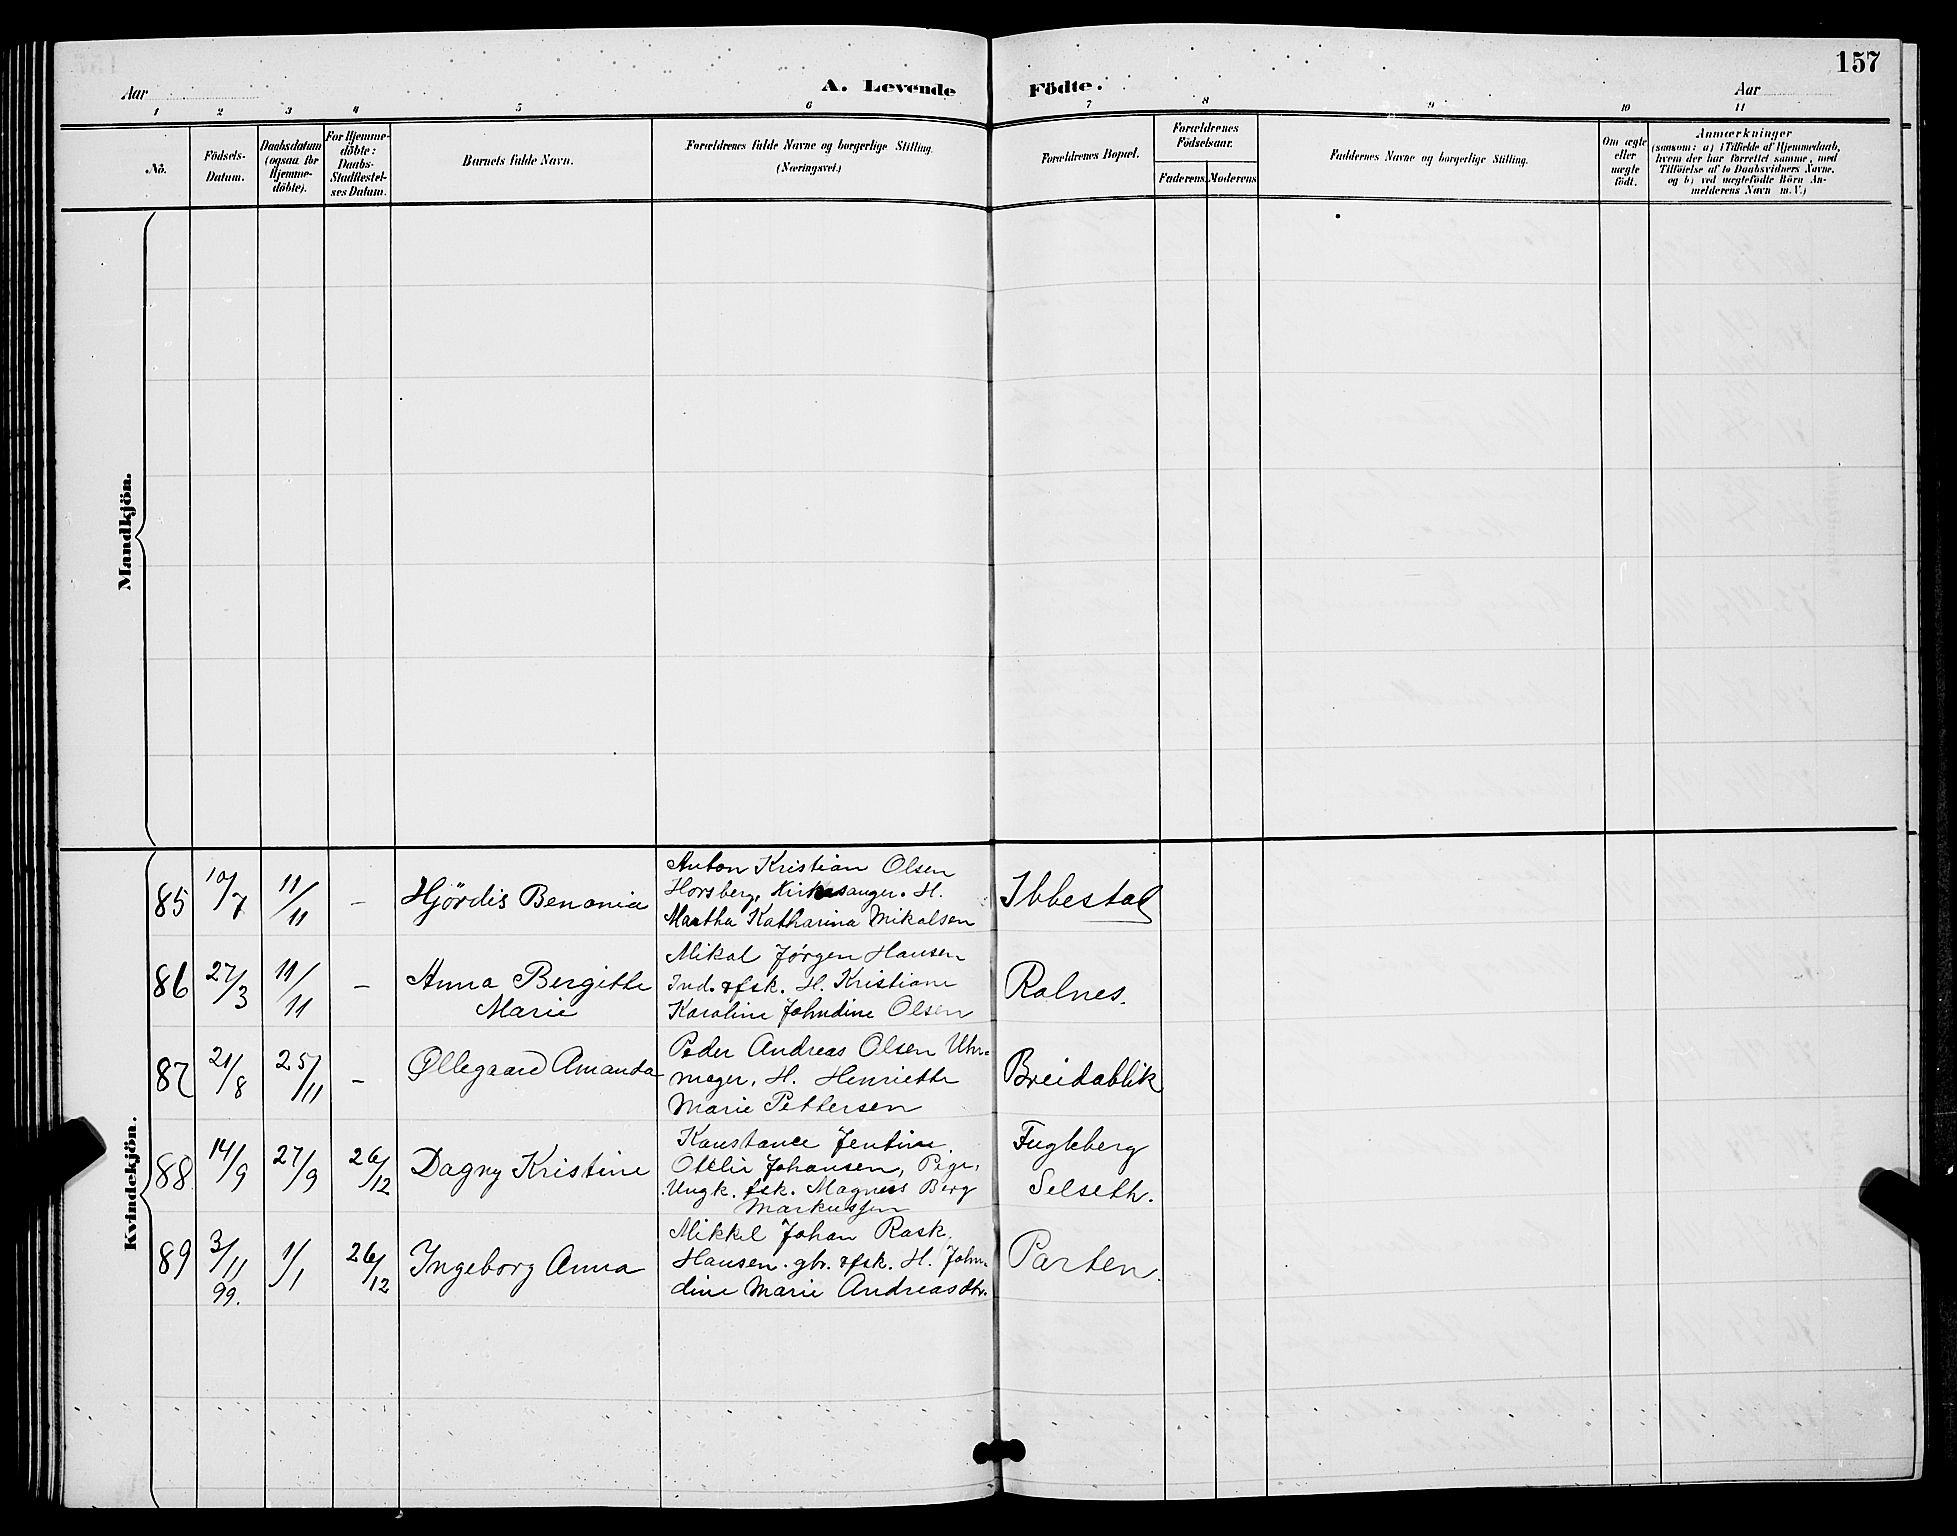 157
A. Levende Födte.
Aar
Aar
1 2 3 4 5 6 7 8 9 10 11
No.
Födsels-
Datum.
Daabsdatum
(ogsaa for
Hjemme-
döbte).
For Hjemme-
döbte:
Daabs-
Stadfæstel-
ses Datum.
Barnets fulde Navn.
Forældrenes fulde Navne og borgerlige Stilling.
(Næringsvei.)
Forældrenes Bopæl.
Forældrenes
Födselsaar.
Faderens. Moderens.
Faddernes Navne og borgerlige Stilling.
Om ægte
eller
uægte
födt.
Anmærkninger
(saasom: a) i Tilfælde af Hjemmedaab,
hvem der har forrettet samme, med
Tilföielse af to Daabsvidners Navne.
og b) ved uægtefödte Börn An-
melderens Navn m. V.)
Mandkjön.
Kvindekjön.
85 10/7 11/11 – Hjördis Benonie
Anton Kristian Olsen
Horsberg, Kirkesanger. H.
Martha Katharina Mikalsen
Ibbestad
86 27/3 11/11 – Anna Bergitte
Marie
Mikal Jørgen Hansen
Ind. & fsk. H. Kristiane
Karoline Johndine Olsen
Rolnes.
87 21/8 25/11 – Øllegaard Amanda
Peder Andreas Olsen Uhr-
mager, H. Henriette
Marie Pettersen
Breidablik
88 14/9 27/9 26/12 Dagny Kristine
Konstance Jentine
Otelie Johansen, Pige,
Ungk. fsk. Magnus Berg
Markussen
Fugleberg
Selseth.
89 3/11 99. 1/1 26/12 Ingeborg Anna
Mikkel Johan Rask
Hansen. gbr. & fsk. H. John-
dine Marie Andreasdtr.
Parten.